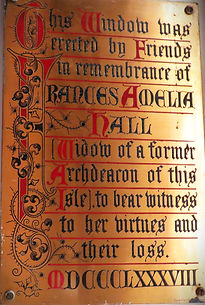 This Window was
erected by Friends
in remembrance of
FRANCES AMELIA
HALL
[Widow of a former
Archdeacon of this
Isle], to bear witness
to her virtues and
their loss.
MDCCCLXXXVIII.